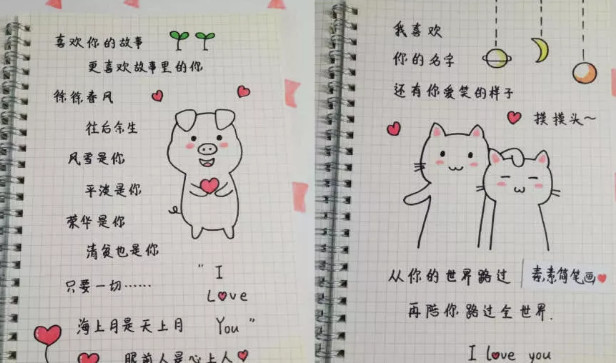 喜欢你的故事
更喜欢故事里的你
徐徐春风
往后余生
风雪是你
平淡是你
荣华是你
清贫也是你
只要一切……
"I
Love
You"
海上月是天上月
眼前人是心上人
我喜欢
你的名字
还有你爱笑的样子
摸摸头~
从你的世界路过
素素简笔画
再陪你路过全世界.
I love you